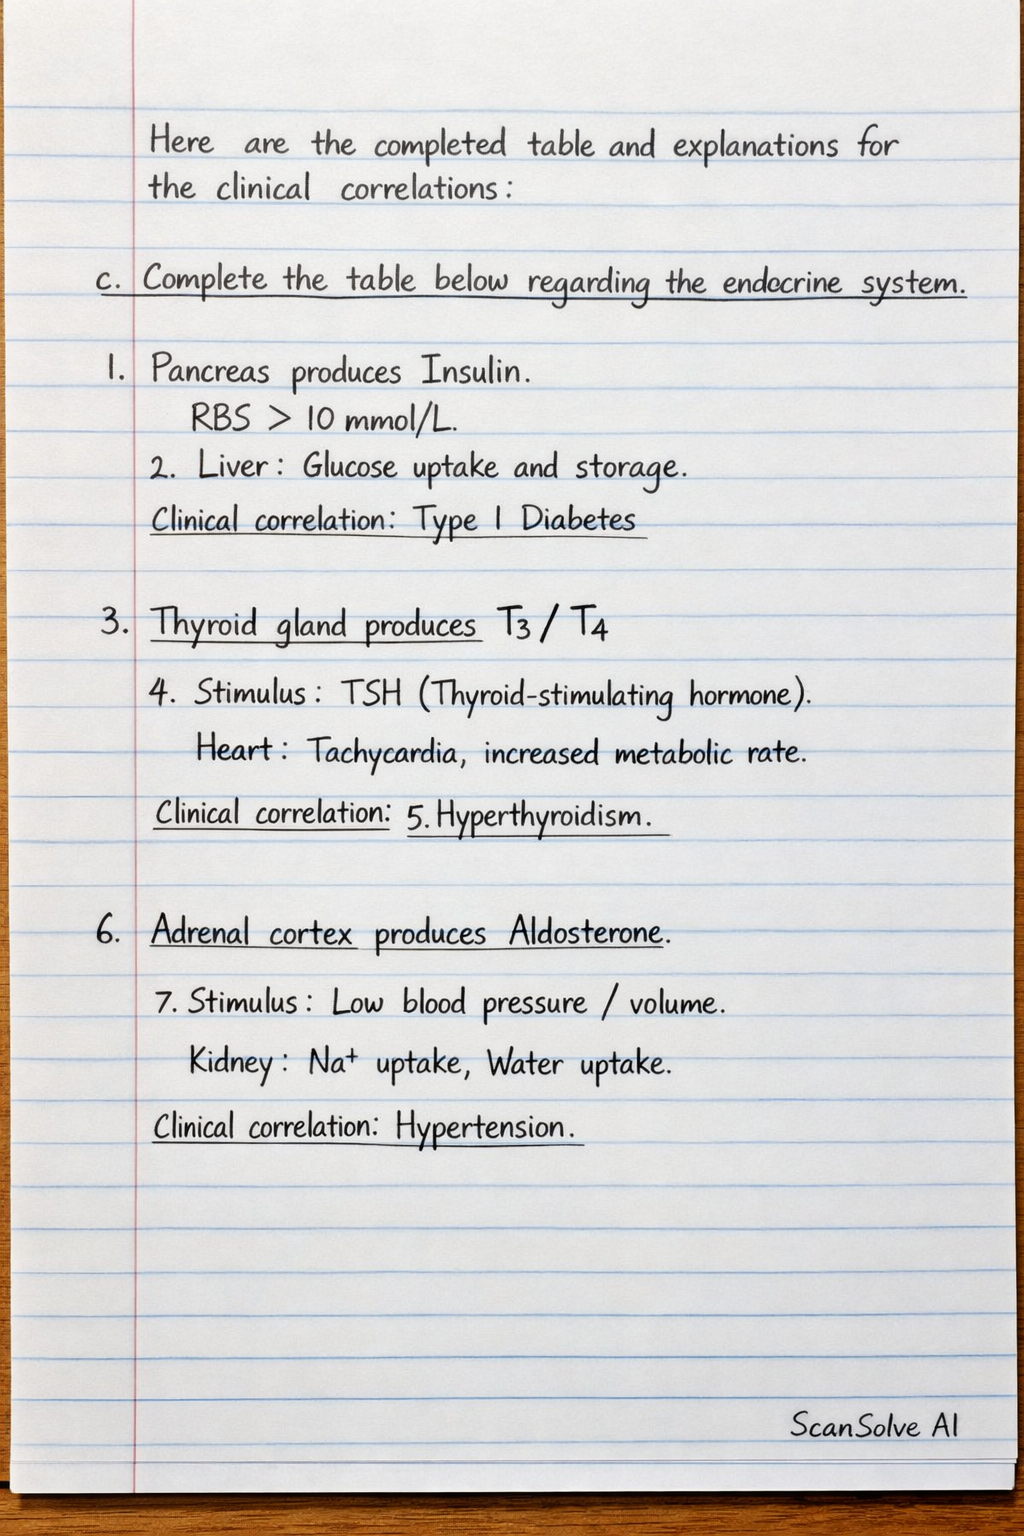 Here are the completed table and explanations for
the clinical correlations:
c. Complete the table below regarding the endocrine system.
1. Pancreas produces Insulin.
RBS > 10 mmol/L.
2. Liver: Glucose uptake and storage.
Clinical correlation: Type 1 Diabetes
3. Thyroid gland produces T₃ / T₄
4. Stimulus: TSH (Thyroid-stimulating hormone).
Heart: Tachycardia, increased metabolic rate.
Clinical correlation: 5. Hyperthyroidism.
6. Adrenal cortex produces Aldosterone.
7. Stimulus: Low blood pressure / volume.
Kidney: Na⁺ uptake, Water uptake.
Clinical correlation: Hypertension.
ScanSolve AI